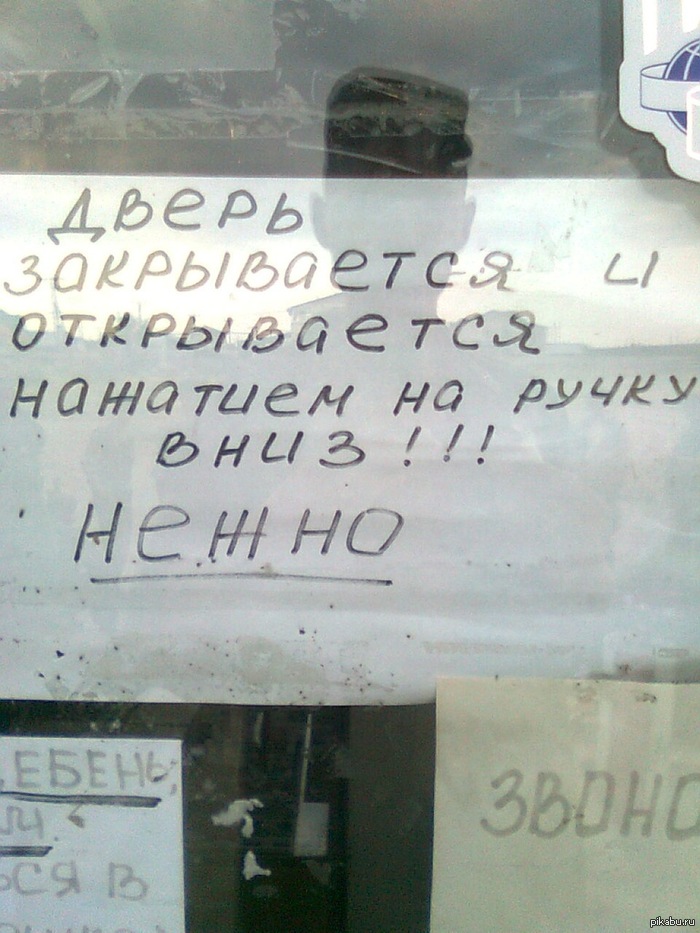 дверь
закрывается и
открывается
нажатием на ручку
вниз!!!
нежно
ЗВОНО
ЕБЕНЬ,
ЬСЯ В
pikabu.ru